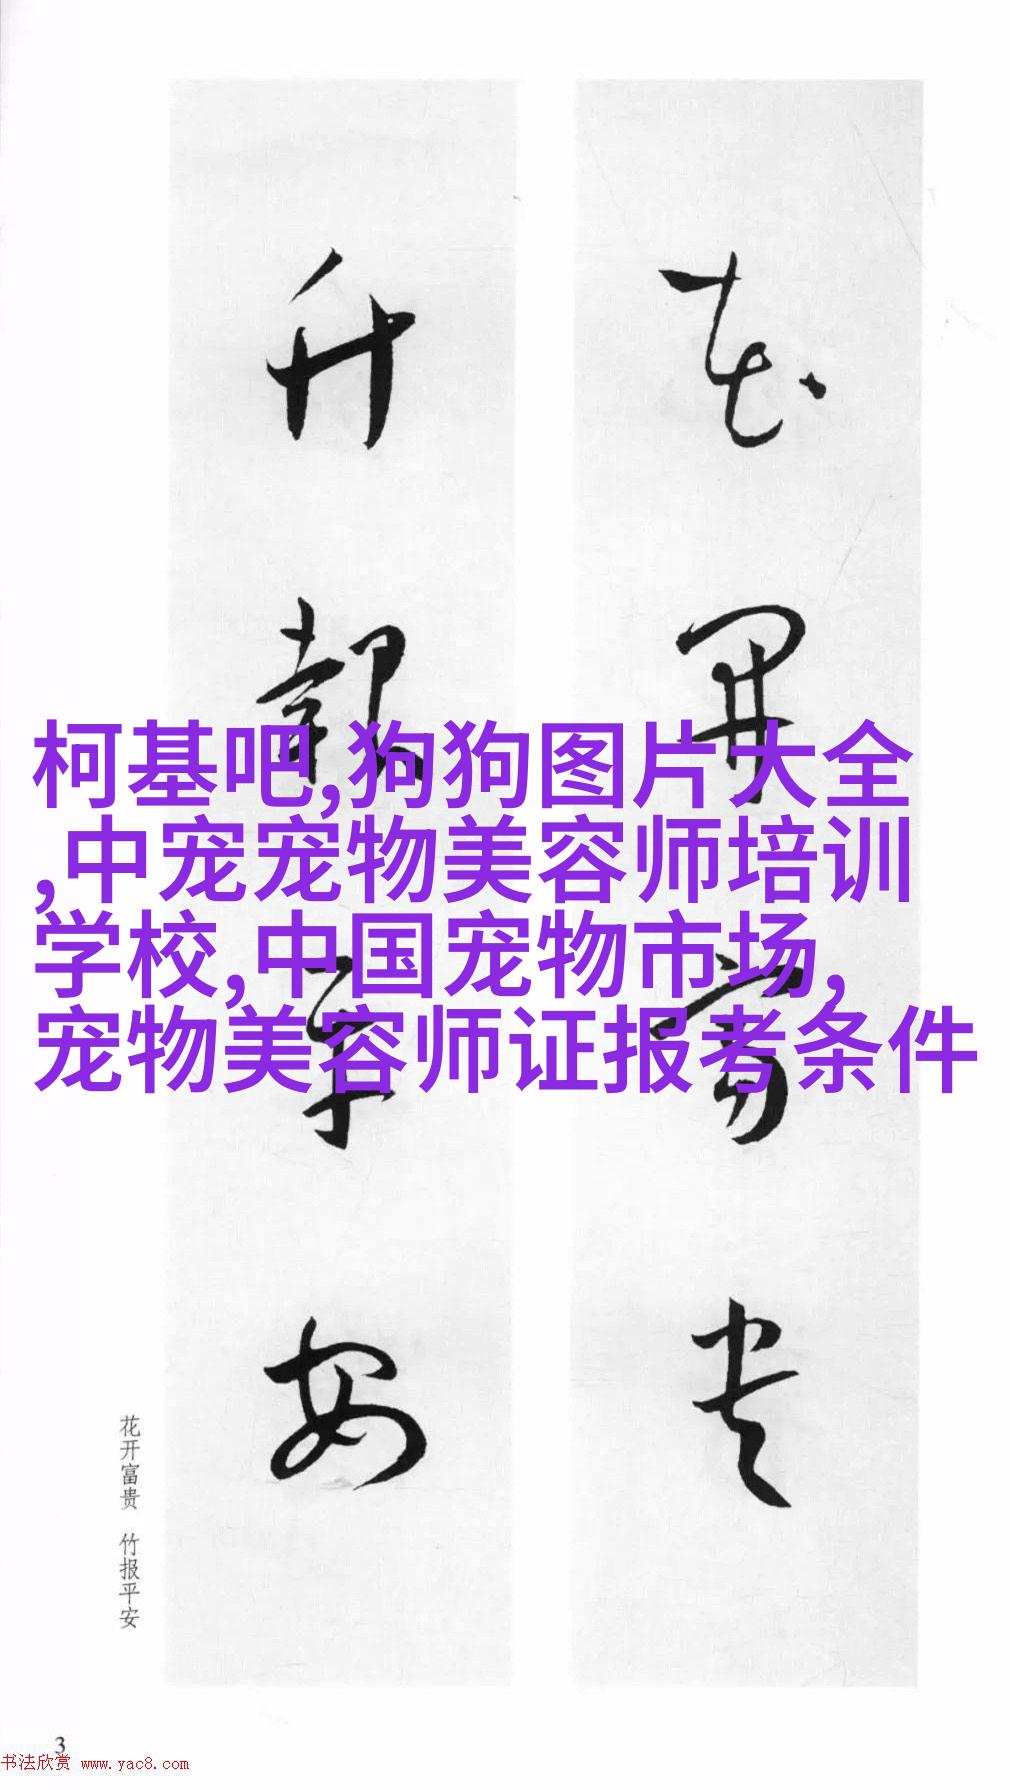 花开富贵
竹报平安
柯基吧,狗狗图片大全
,中宠宠物美容师培训
学校,中国宠物市场,
宠物美容师证报考条件
花开富贵 竹报平安
3
书法欣赏 www.yac8.com